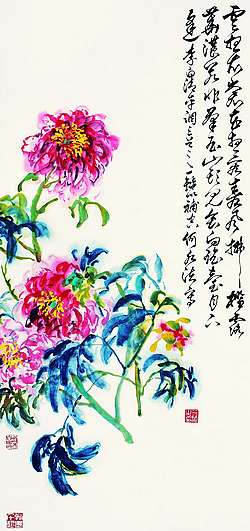 雲想衣裳花想容春風拂檻露
華濃若非群玉山頭見會向瑤台月下
逢 李白清平調三首之一 以補 何水法